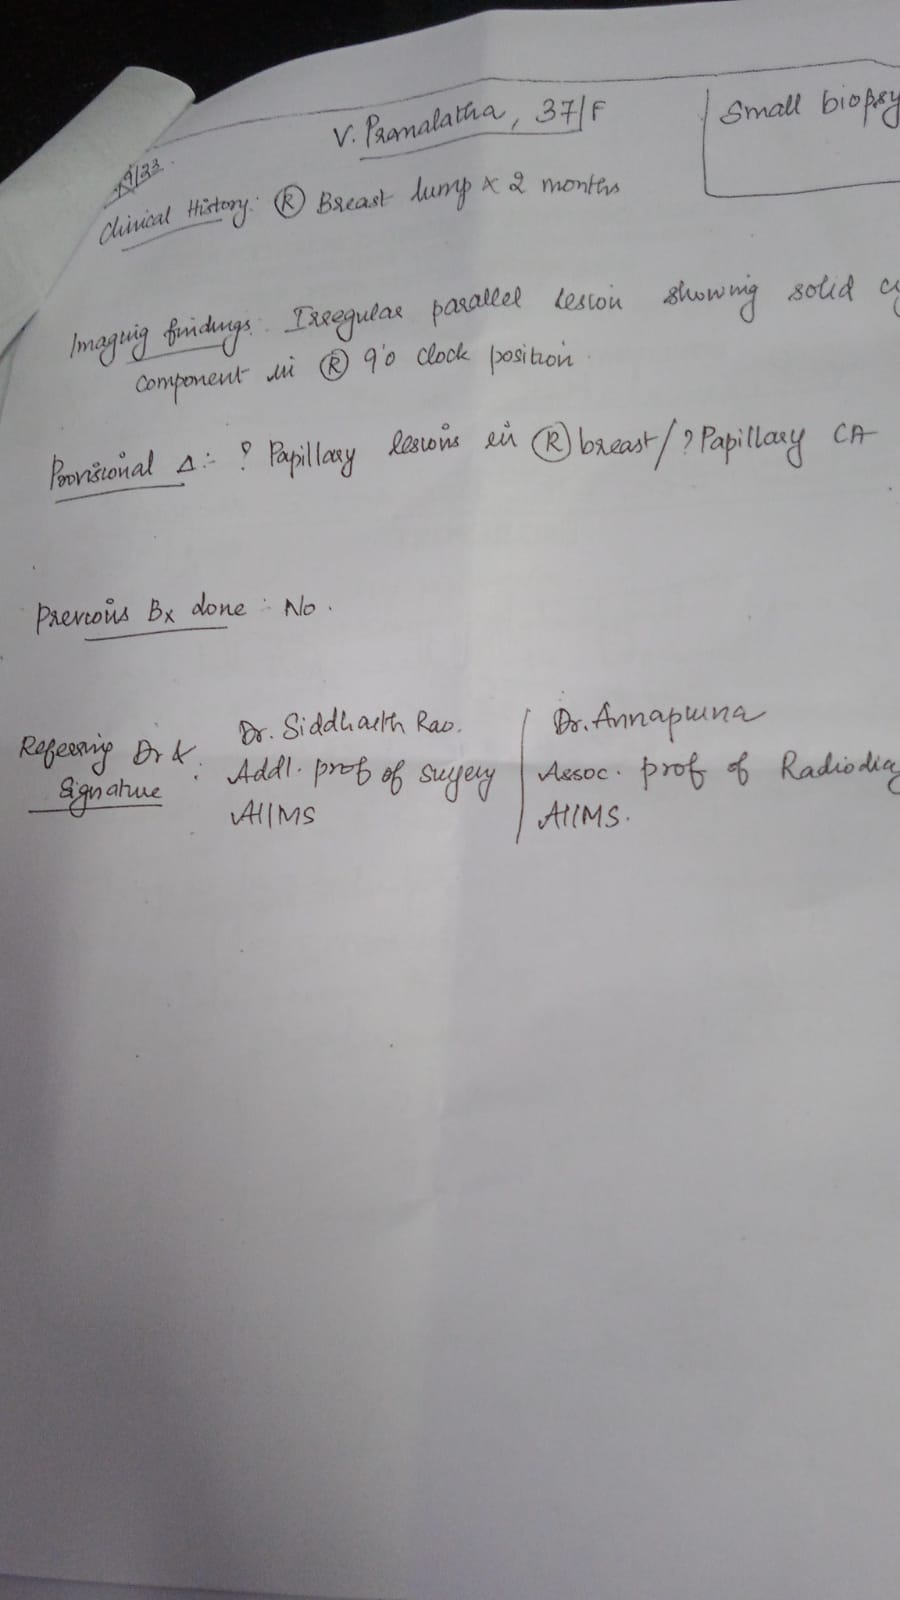 V. Pramalatha, 37/F
Small biopsy
9/23.
Clinical History: Ⓡ Breast lump x 2 months
Imaging findings: Irregular parallel lesion showing solid
component in Ⓡ 9'o clock position.
Provisional Δ :- ? Papillary lesions in Ⓡ breast/ ? Papillary CA
Previous Bx done : No.
Referring Dr & Signature :
Dr. Siddharth Rao.
Addl. prof of surgery
AIIMS
Dr. Annapurna
Assoc. prof of Radiodiag
AIIMS.